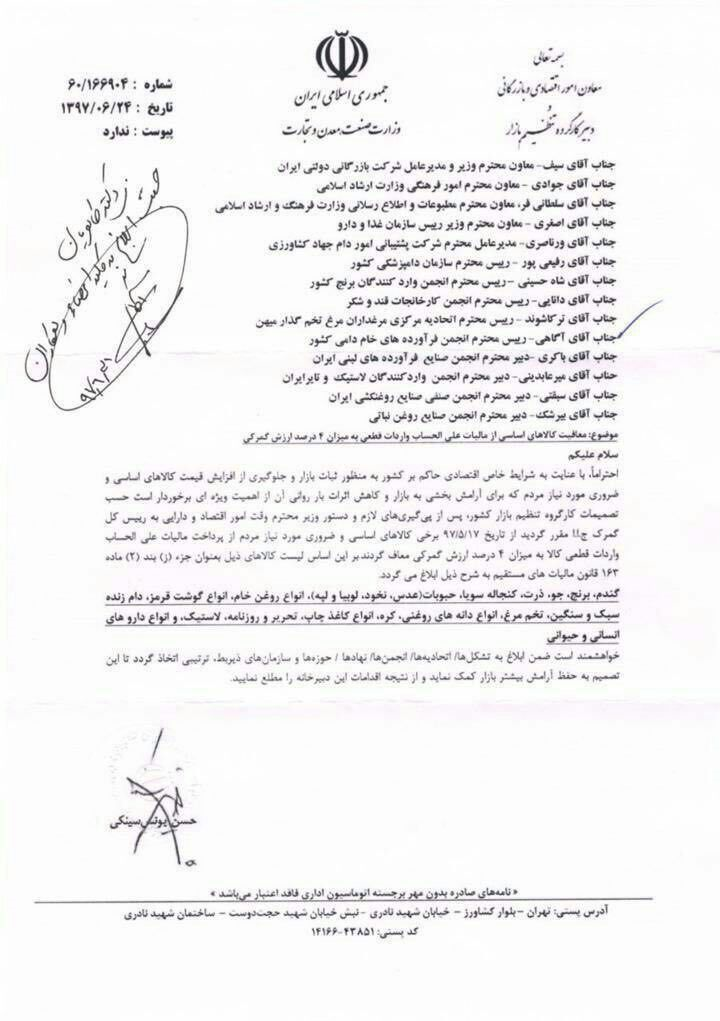 بسمه تعالی
معاون امور اقتصادی و بازرگانی
و
دبیر کارگروه تنظیم بازار
جمهوری اسلامی ایران
وزارت صنعت، معدن و تجارت
شماره : ۶۰/۱۶۶۹۰۴
تاریخ : ۱۳۹۷/۰۶/۲۴
پیوست : ندارد
جناب آقای سیف- معاون محترم وزیر و مدیرعامل شرکت بازرگانی دولتی ایران
جناب آقای جوادی - معاون محترم امور فرهنگی وزارت ارشاد اسلامی
جناب آقای سلطانی فر، معاون محترم مطبوعات و اطلاع رسلانی وزارت فرهنگ و ارشاد اسلامی
جناب آقای اصغری - معاون محترم وزیر رییس سازمان غذا و دارو
جناب آقای ورناصری- مدیرعامل محترم شرکت پشتیبانی امور دام جهاد کشاورزی
جناب آقای رفیعی پور - رییس محترم سازمان دامپزشکی کشور
جناب آقای شاه حسینی – رییس محترم انجمن وارد کنندگان برنج کشور
جناب آقای دانایی- رییس محترم انجمن کارخانجات قند و شکر
جناب آقای ترکاشوند – رییس محترم اتحادیه مرکزی مرغداران مرغ تخم گذار میهن
جناب آقای آگاهی- رییس محترم انجمن فرآورده های خام دامی کشور
جناب آقای باکری - دبیر محترم انجمن صنایع فرآورده های لبنی ایران
جناب آقای میرعابدینی- دبیر محترم انجمن واردکنندگان لاستیک و تایرایران
جناب آقای سبقتی - دبیر محترم انجمن صنفی صنایع روغنکشی ایران
جناب آقای بیرشک- دبیر محترم انجمن صنایع روغن نباتی
موضوع: معافیت کالاهای اساسی از مالیات علی الحساب واردات قطعی به میزان ۴ درصد ارزش گمرکی
سلام علیکم
احتراماً، با عنایت به شرایط خاص اقتصادی حاکم بر کشور به منظور ثبات بازار و جلوگیری از افزایش قیمت کالاهای اساسی و
ضروری مورد نیاز مردم که برای آرامش بخشی به بازار و کاهش اثرات بار روانی آن از اهمیت ویژه ای برخوردار است حسب
تصمیمات کارگروه تنظیم بازار کشور، پس از پی‌گیری‌های لازم و دستور وزیر محترم وقت امور اقتصاد و دارایی به رییس کل
گمرک ج.ا.ا مقرر گردید از تاریخ ۹۷/۵/۱۷ برخی کالاهای اساسی و ضروری مورد نیاز مردم از پرداخت مالیات علی الحساب
واردات قطعی کالا به میزان ۴ درصد ارزش گمرکی معاف گردند.بر این اساس لیست کالاهای ذیل بعنوان جزء (ز) بند (۲) ماده
۱۶۳ قانون مالیات های مستقیم به شرح ذیل ابلاغ می گردد.
گندم، برنج، جو، ذرت، کنجاله سویا، حبوبات(عدس، نخود، لوبیا و لپه)، انواع روغن خام، انواع گوشت قرمز، دام زنده
سبک و سنگین، تخم مرغ، انواع دانه های روغنی، کره، انواع کاغذ چاپ، تحریر و روزنامه، لاستیک، و انواع دارو های
انسانی و حیوانی
خواهشمند است ضمن ابلاغ به تشکل‌ها/ اتحادیه‌ها/ انجمن‌ها/ نهادها / حوزه‌ها و سازمان‌های ذیربط، ترتیبی اتخاذ گردد تا این
تصمیم به حفظ آرامش بیشتر بازار کمک نماید و از نتیجه اقدامات این دبیرخانه را مطلع نمایید.
حسن یونس‌سینکی
« نامه‌های صادره بدون مهر برجسته اتوماسیون اداری فاقد اعتبار می‌باشد »
آدرس پستی: تهران - بلوار کشاورز - خیابان شهید نادری - نبش خیابان شهید حجت‌دوست - ساختمان شهید نادری
کد پستی: ۴۳۸۵۱-۱۴۱۶۶